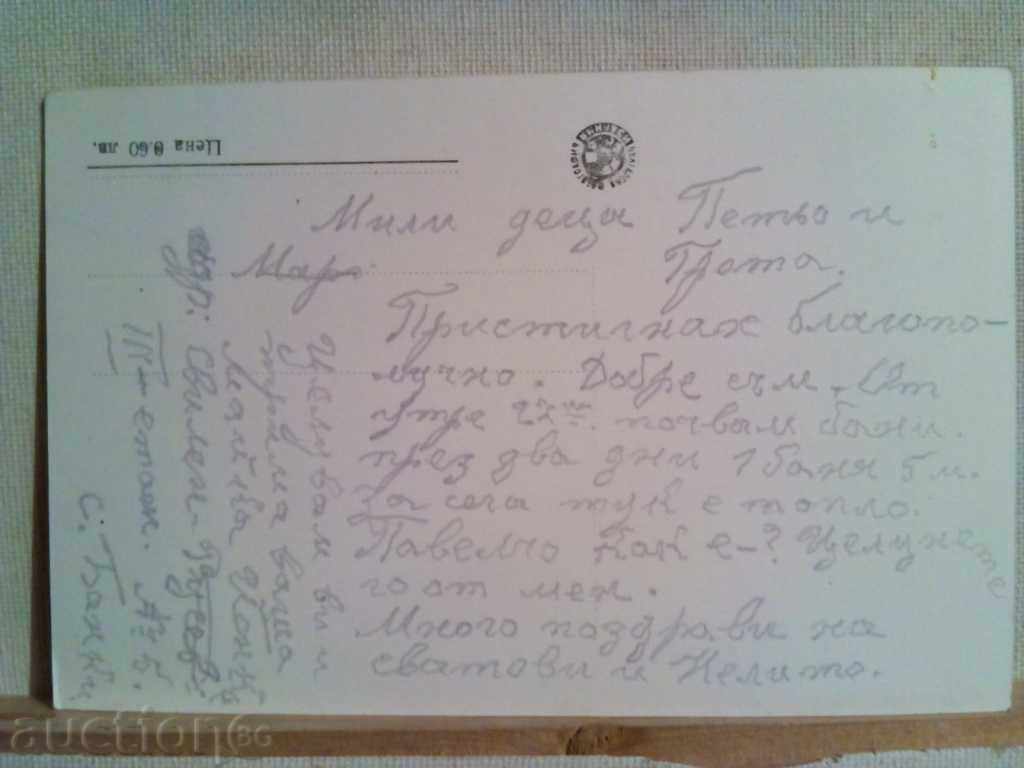 Цена 0.60 лв.
Мили деца Петьо и
Мар
Грета.
Пристигнах благопо-
лучно. Добре съм. От
утре 27 почвам бани.
през два дни 1 баня 5 м.
За сега тук е топло.
Павелчо как е-? Целунете
го от мен.
Много поздрави на
сватови и Нелито.
Целувам ви и
ваша
майка
Свилен
III етаж. А 5.
с. Банкя
auctionBG